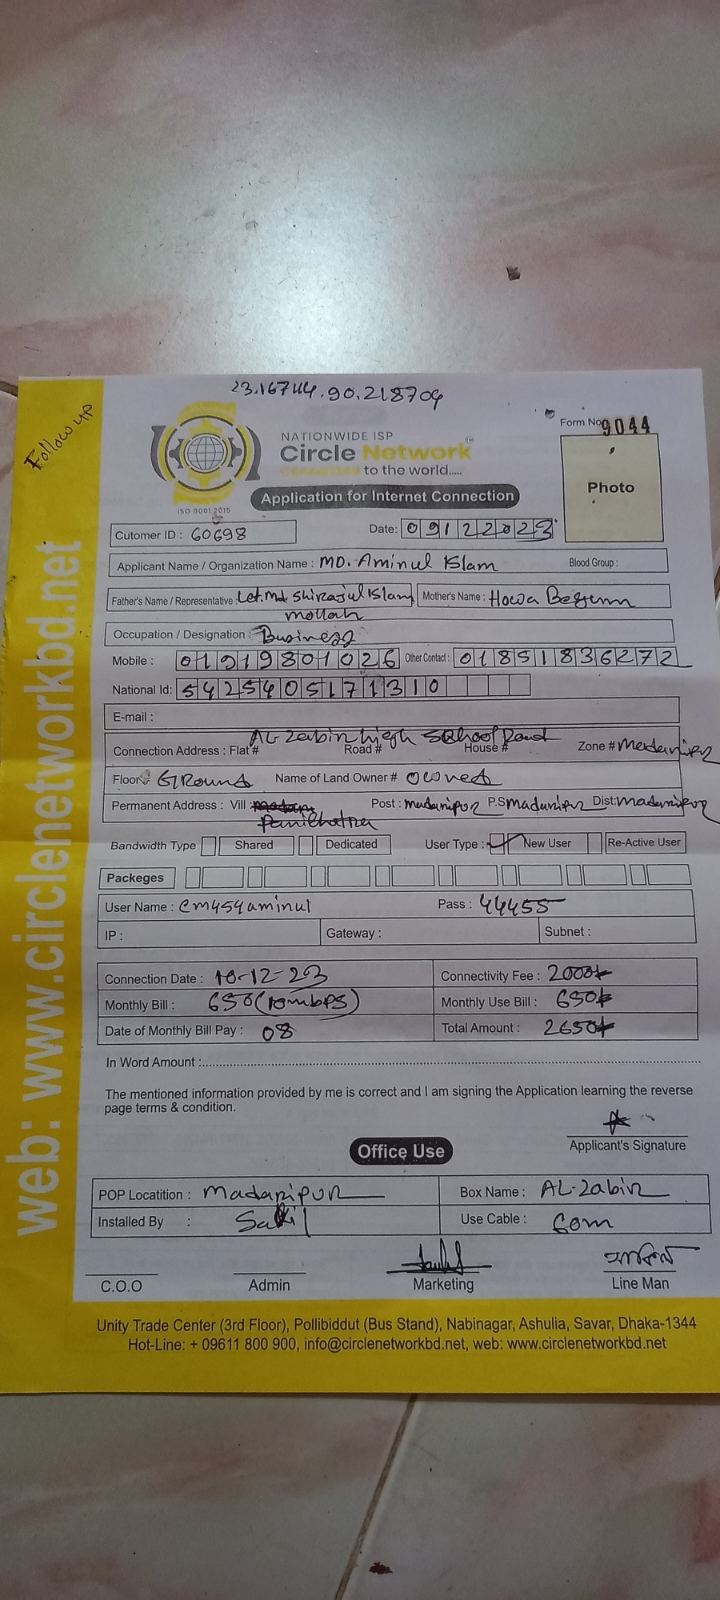 23.16744.90.218704
Follow up
NATIONWIDE ISP
Circle Network
Connected to the world.....
ISO 9001:2015
Form No 9044
Application for Internet Connection
Photo
Cutomer ID : 60698 Date: 09122023
Applicant Name / Organization Name : MD. Aminul Islam Blood Group :
Father's Name / Representative : Let. Md. Shirajul Islam Mother's Name : Howa Begum
mollah
Occupation / Designation : Business
Mobile : 01919801026 Other Contact : 01851836272
National Id: 5425405171310
E-mail :
AL-Zabir high School Road
Connection Address : Flat # Road # House # Zone # Madaripur
Floor# GRound Name of Land Owner # owned
Permanent Address : Vill Post : madaripur P.S madaripur Dist: madaripur
Bandwidth Type Shared Dedicated User Type : New User Re-Active User
Packeges
User Name : cm454aminul Pass : 44455
IP : Gateway : Subnet :
Connection Date : 10-12-23 Connectivity Fee : 2000/-
Monthly Bill : 650 (10mbps) Monthly Use Bill : 650/-
Date of Monthly Bill Pay : 08 Total Amount : 2650/-
In Word Amount :
The mentioned information provided by me is correct and I am signing the Application learning the reverse
page terms & condition.
Applicant's Signature
Office Use
POP Locatition : Madaripur Box Name : AL-Zabir
Installed By : Sakil Use Cable : 60m
C.O.O Admin Marketing Line Man
Unity Trade Center (3rd Floor), Pollibiddut (Bus Stand), Nabinagar, Ashulia, Savar, Dhaka-1344
Hot-Line: + 09611 800 900, info@circlenetworkbd.net, web: www.circlenetworkbd.net
web: www.circlenetworkbd.net